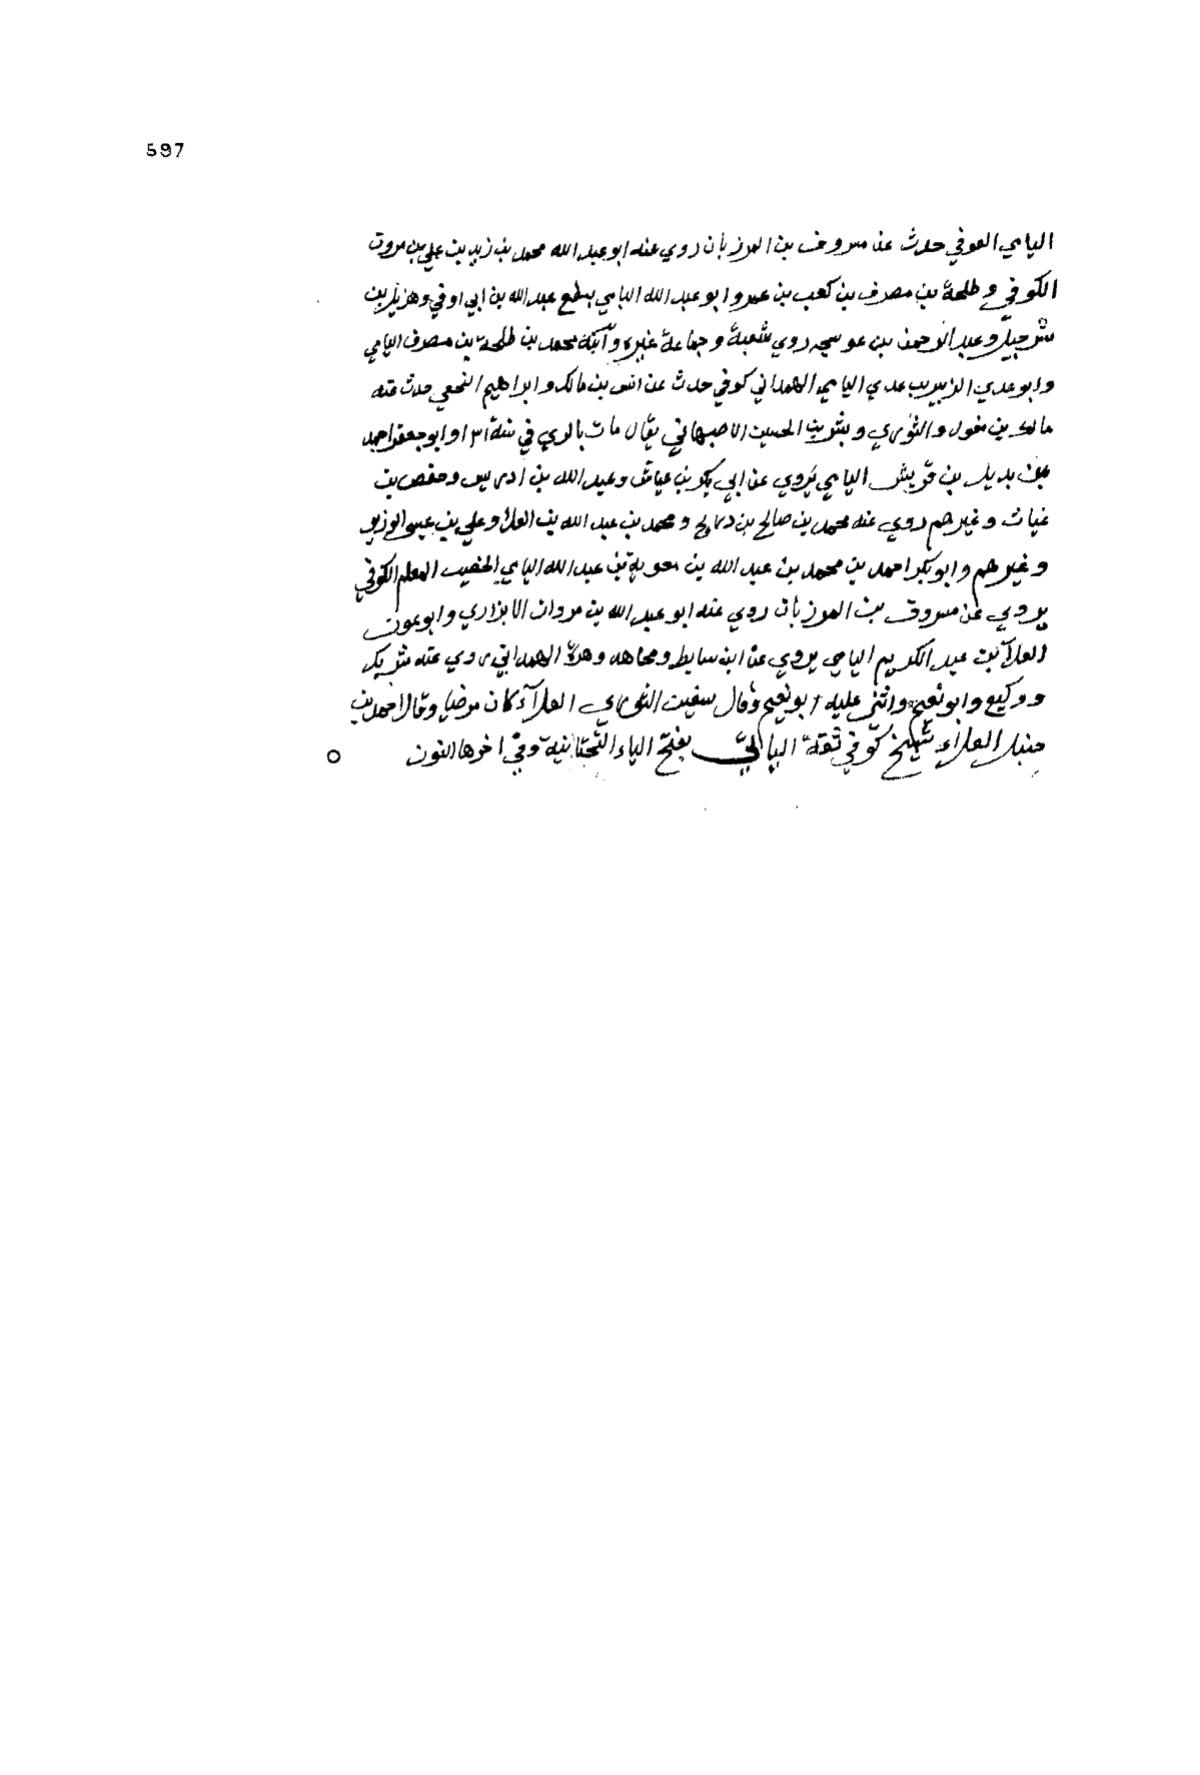 597
اليامي العوفي حدث عن مسروق بن المرزبان روي عنه ابو عبد الله محمد بن زيد بن علي بن مروت
الكوفي وطلحة بن مصرف بن كعب بن عمرو ابو عبد الله اليامي سمع عبد الله بن ابي اوفي وهزيل بن
شرحبيل وعبد الرحمن بن عوسجه روي شعبة وجماعة غيره وابنه محمد بن طلحة بن مصرف اليامي
وابو عدي الزبير بن عدي اليامي الهمداني كوفي حدث عن انس بن مالك وابراهيم النخعي حدث عنه
مالك بن مغول والثوري وبشر بن الحسين الاصبهاني يقال مات بالري في سنة ١٣١ وابو جعفر احمد
بن بديل بن قريش اليامي يروي عن ابي بكر بن عياش وعبد الله بن ادريس وحفص بن
غياث وغيرهم روي عنه محمد بن صالح بن دريح ومحمد بن عبد الله بن العلا وعلي بن عيسي الوزير
وغيرهم وابو بكر احمد بن محمد بن عبد الله بن معوية بن عبد الله اليامي الخضيب المعلم الكوفي
يروي عن مسروق بن المرزبان روي عنه ابو عبد الله بن مروان الابزاري وابو عون
العلآ بن عبد الكريم اليامي يروي عن ابن سابط ومجاهد ومرة الهمداني روي عنه شريك
ووكيع وابو نعيم واثني عليه ابو نعيم وقال سفين الثوري العلاء كان مرضيا وقال احمد بن
حنبل العلاء شيخ كوفي ثقة الياني بفتح الياء التحتانية وفي اخرها النون